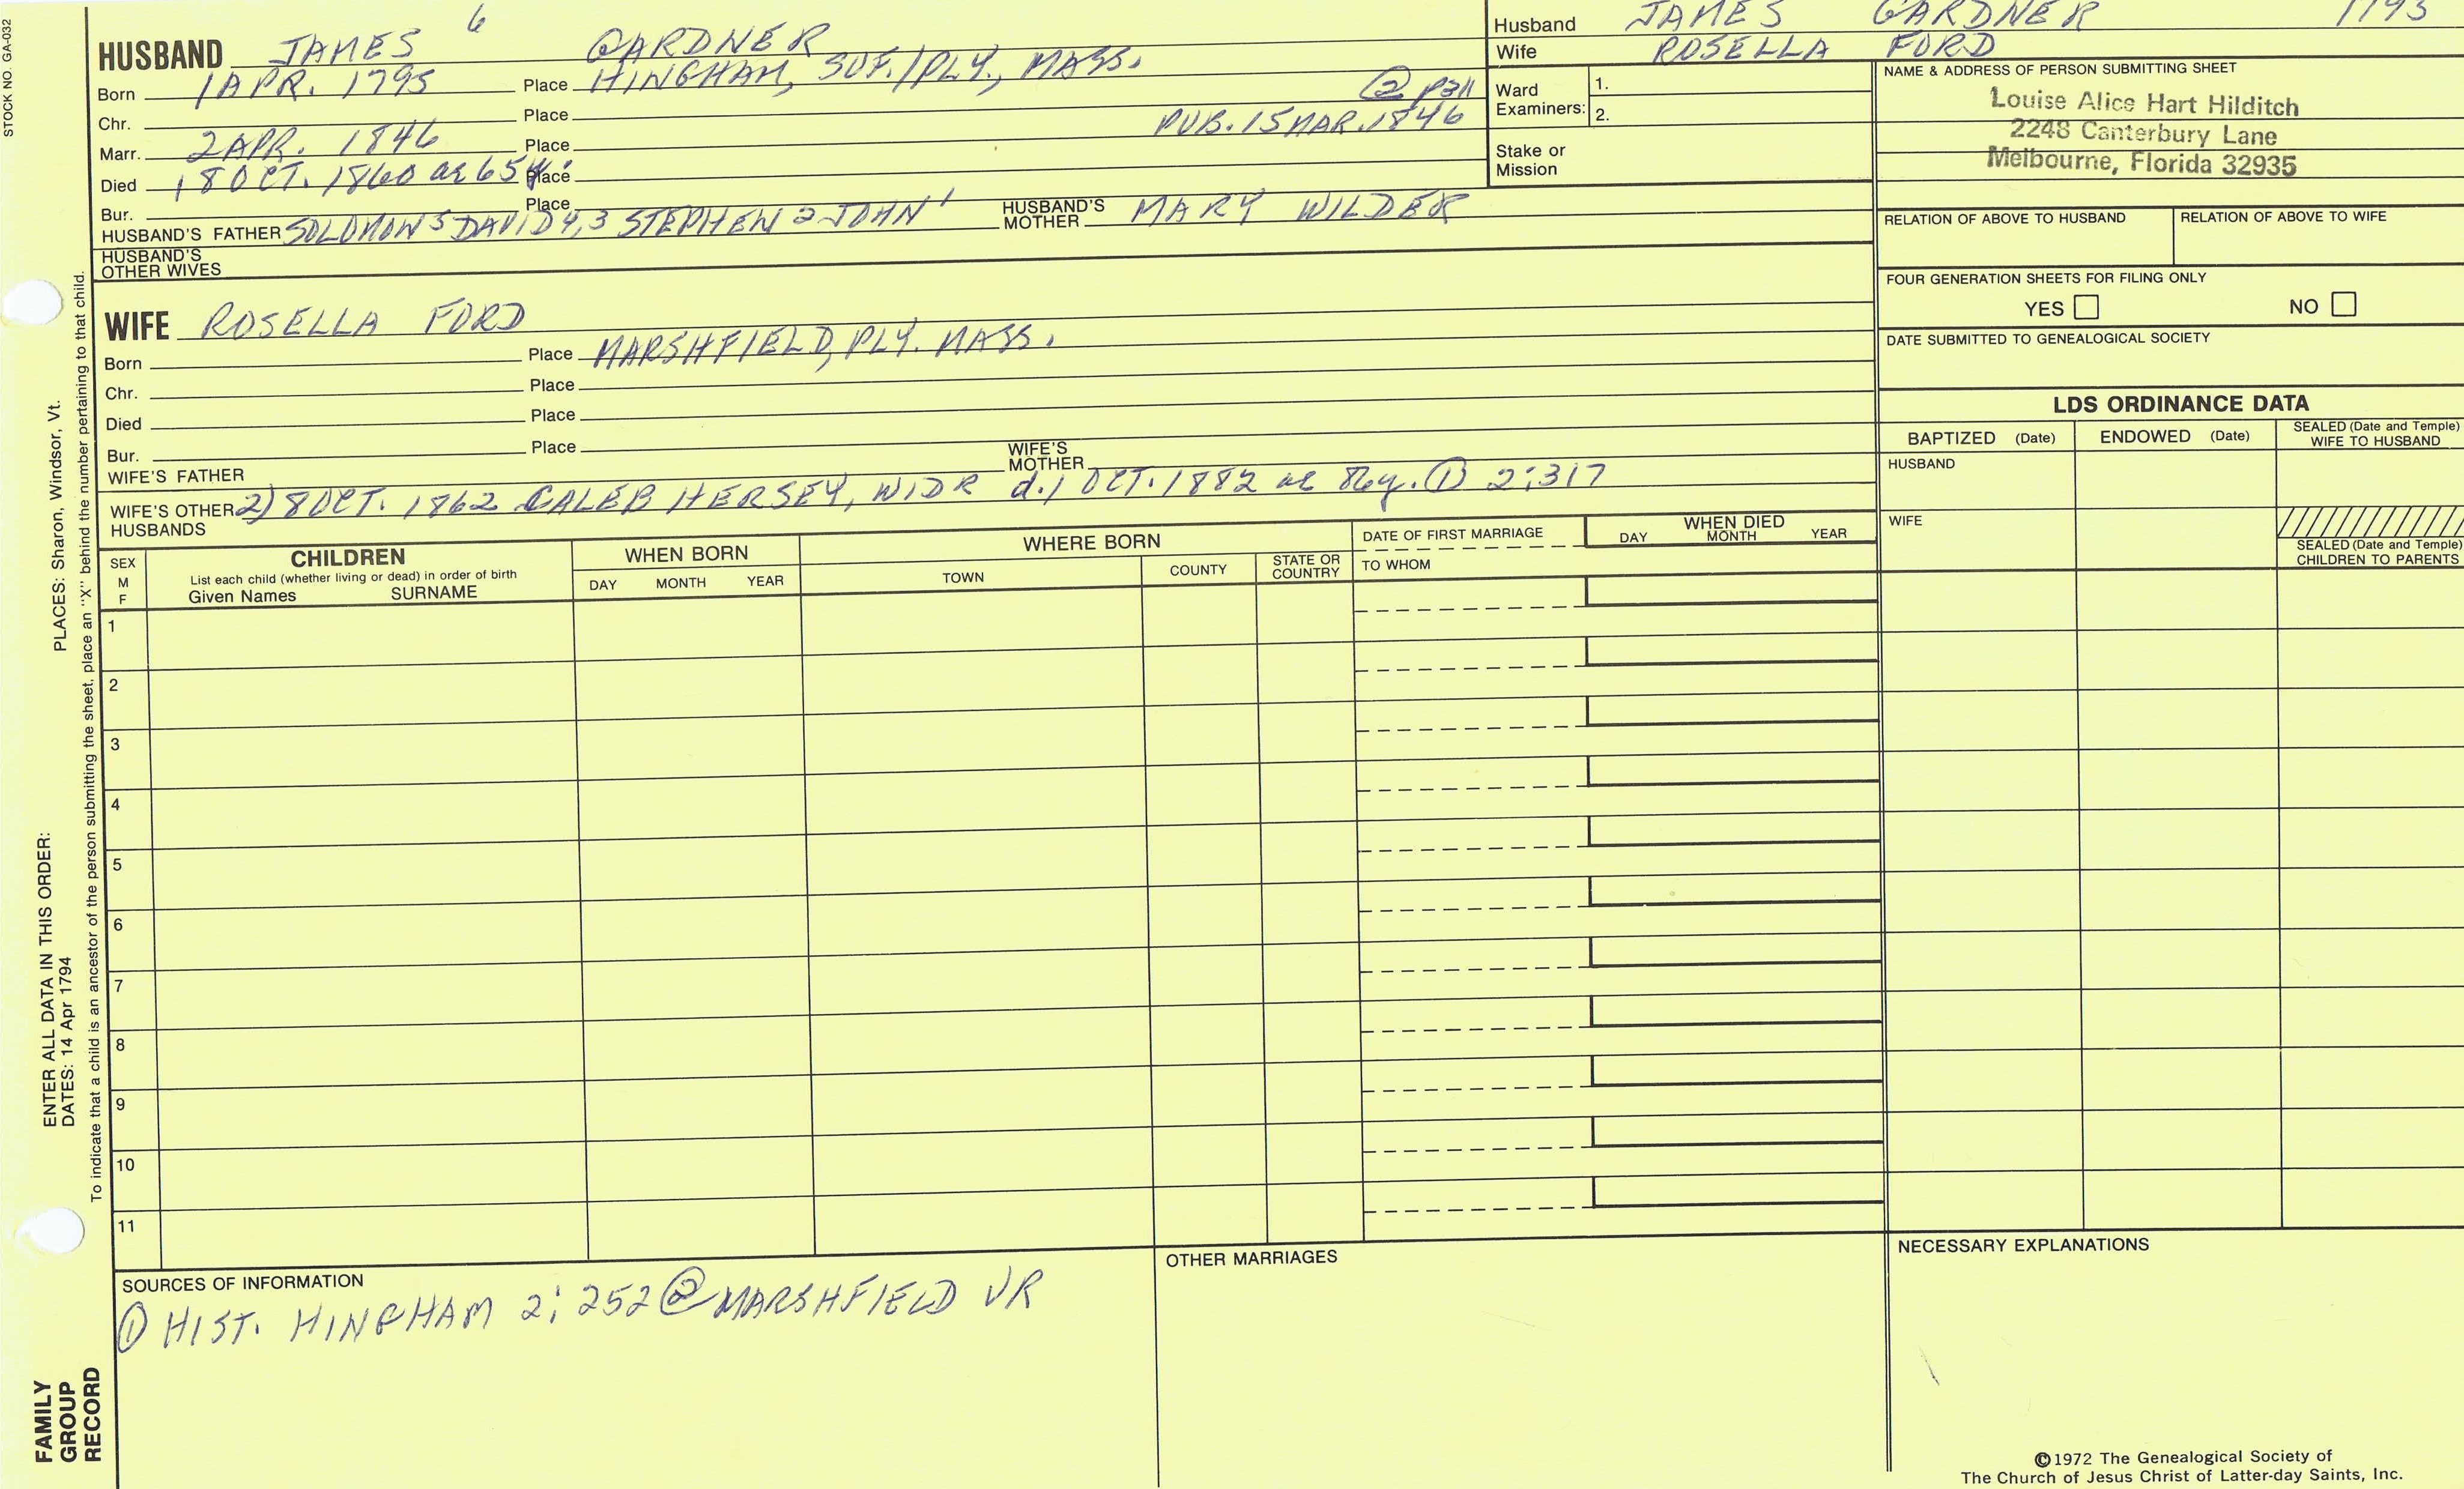 STOCK NO. GA-032
HUSBAND JAMES 6 GARDNER
Born 1 APR. 1795 Place HINGHAM, SUF./PLY., MASS.
Chr. Place ② P311
Marr. 2 APR. 1846 Place PUB. 15 MAR. 1846
Died 18 OCT. 1860 ae 65y. Place
Bur. Place
HUSBAND'S FATHER SOLOMON 5 DAVID 4,3 STEPHEN 2 JOHN 1 HUSBAND'S MOTHER MARY WILDER
HUSBAND'S OTHER WIVES
WIFE ROSELLA FORD
Born Place MARSHFIELD, PLY. MASS.
Chr. Place
Died Place
Bur. Place
WIFE'S FATHER WIFE'S MOTHER
WIFE'S OTHER HUSBANDS 2) 8 OCT. 1862 CALEB HERSEY, WIDR d. 1 OCT. 1882 ae 86y. ① 2:317
Husband JAMES GARDNER 1795
Wife ROSELLA FORD
Ward Examiners: 1.
2.
Stake or Mission
NAME & ADDRESS OF PERSON SUBMITTING SHEET
Louise Alice Hart Hilditch
2248 Canterbury Lane
Melbourne, Florida 32935
RELATION OF ABOVE TO HUSBAND RELATION OF ABOVE TO WIFE
FOUR GENERATION SHEETS FOR FILING ONLY
YES NO
DATE SUBMITTED TO GENEALOGICAL SOCIETY
LDS ORDINANCE DATA
BAPTIZED (Date) ENDOWED (Date) SEALED (Date and Temple) WIFE TO HUSBAND
HUSBAND
WIFE
SEALED (Date and Temple) CHILDREN TO PARENTS
SEX M F
CHILDREN
List each child (whether living or dead) in order of birth
Given Names SURNAME
WHEN BORN
DAY MONTH YEAR
WHERE BORN
TOWN COUNTY STATE OR COUNTRY
DATE OF FIRST MARRIAGE
TO WHOM
WHEN DIED
DAY MONTH YEAR
1
2
3
4
5
6
7
8
9
10
11
SOURCES OF INFORMATION
① HIST. HINGHAM 2:252 ② MARSHFIELD VR
OTHER MARRIAGES
NECESSARY EXPLANATIONS
©1972 The Genealogical Society of
The Church of Jesus Christ of Latter-day Saints, Inc.
FAMILY
GROUP
RECORD
ENTER ALL DATA IN THIS ORDER:
DATES: 14 Apr 1794
PLACES: Sharon, Windsor, Vt.
To indicate that a child is an ancestor of the person submitting the sheet, place an "X" behind the number pertaining to that child.